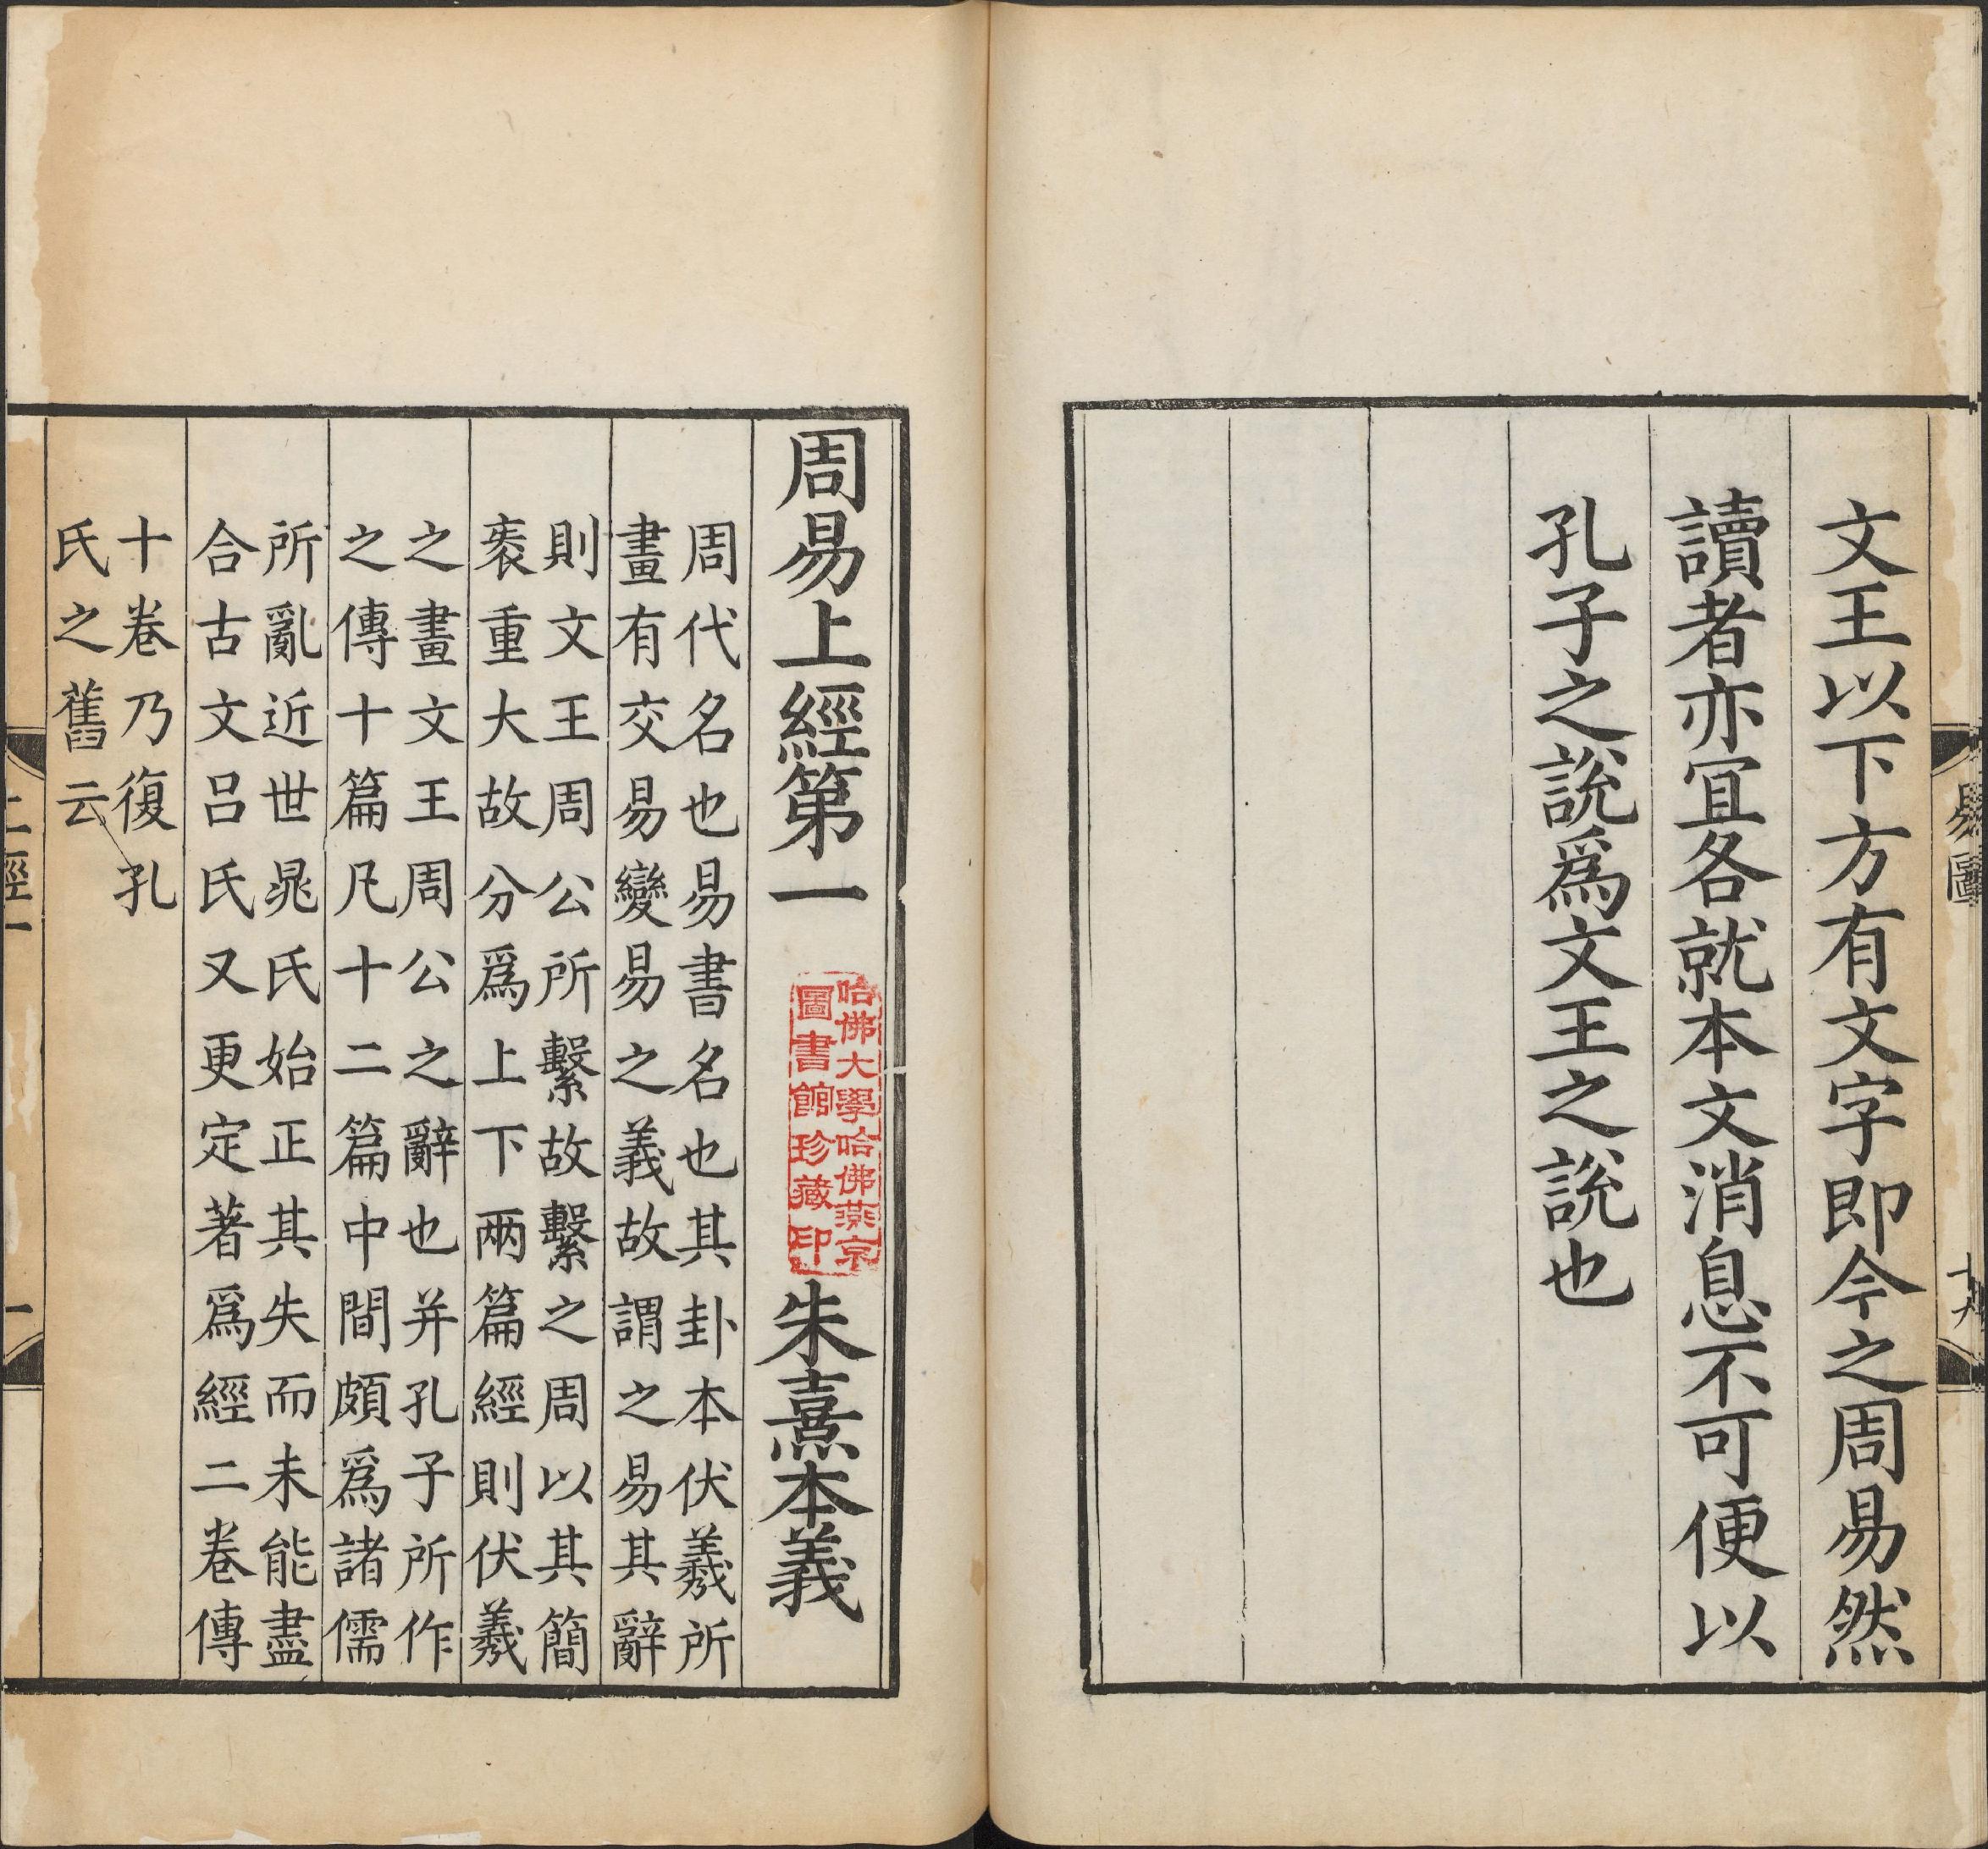 文王以下方有文字即今之周易然
讀者亦宜各就本文消息不可便以
孔子之說爲文王之說也
周易上經第一
朱熹本義
哈佛大學哈佛燕京
圖書館珍藏印
周代名也易書名也其卦本伏羲所
畫有交易變易之義故謂之易其辭
則文王周公所繫故繫之周以其簡
袠重大故分爲上下兩篇經則伏羲
之畫文王周公之辭也并孔子所作
之傳十篇凡十二篇中間頗爲諸儒
所亂近世晁氏始正其失而未能盡
合古文呂氏又更定著爲經二卷傳
十卷乃復孔
氏之舊云